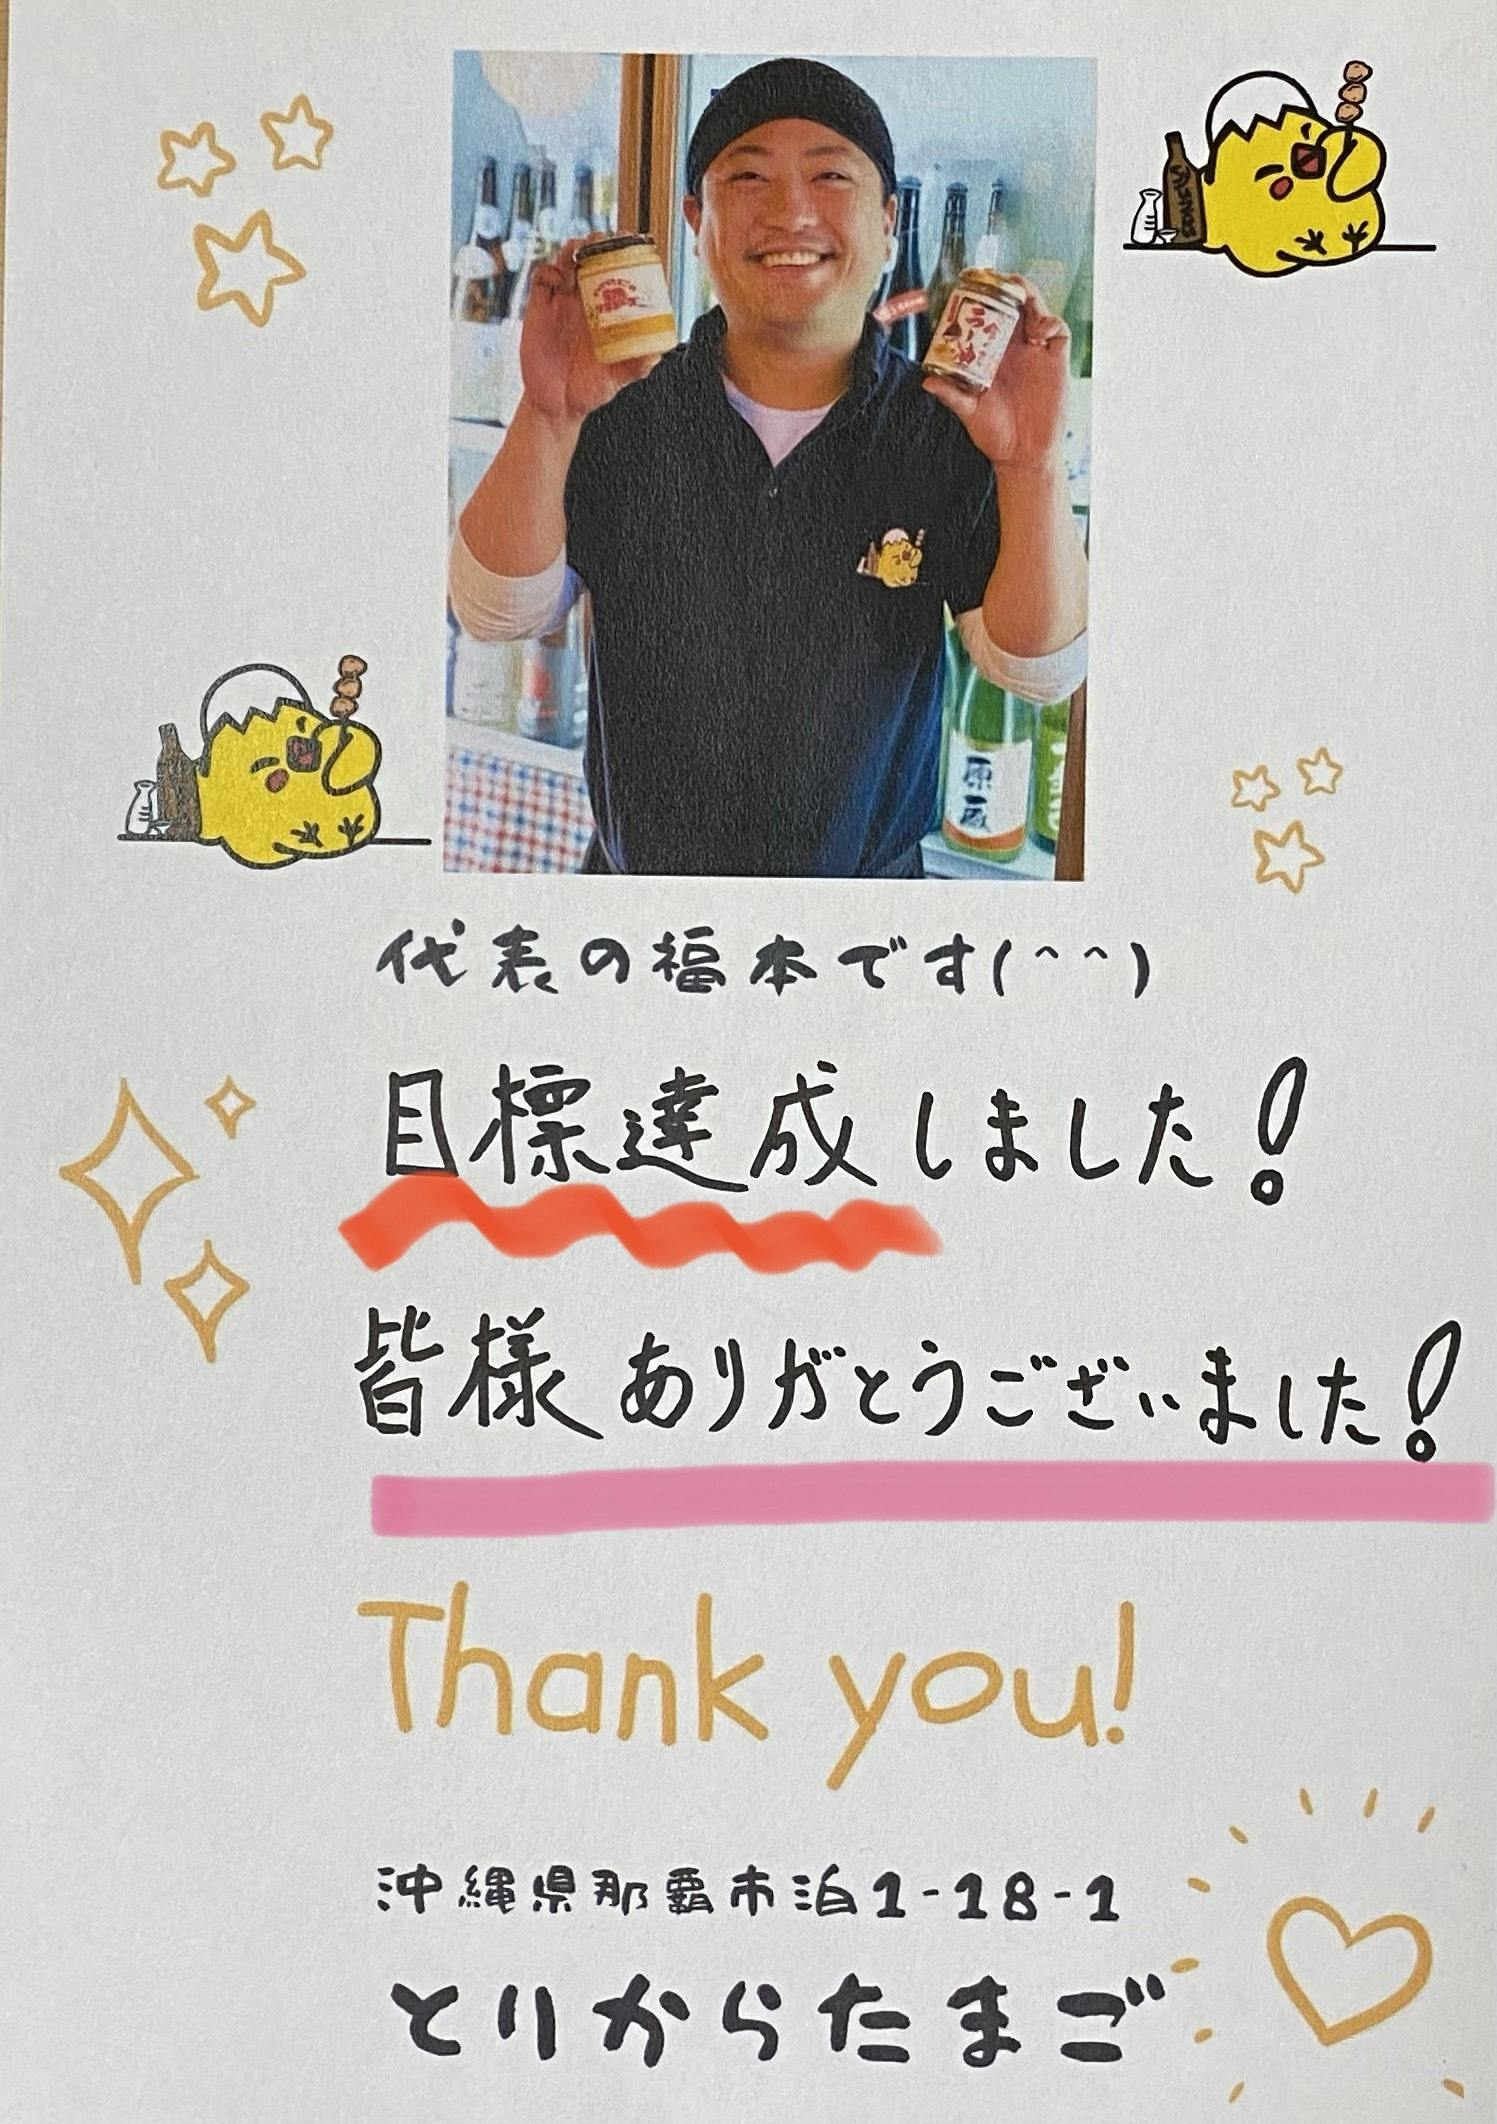 ラー油
原蔵
代表の福本です(^^)
目標達成しました!
皆様ありがとうございました!
Thank you!
沖縄県那覇市泊1-18-1
とりからたまご